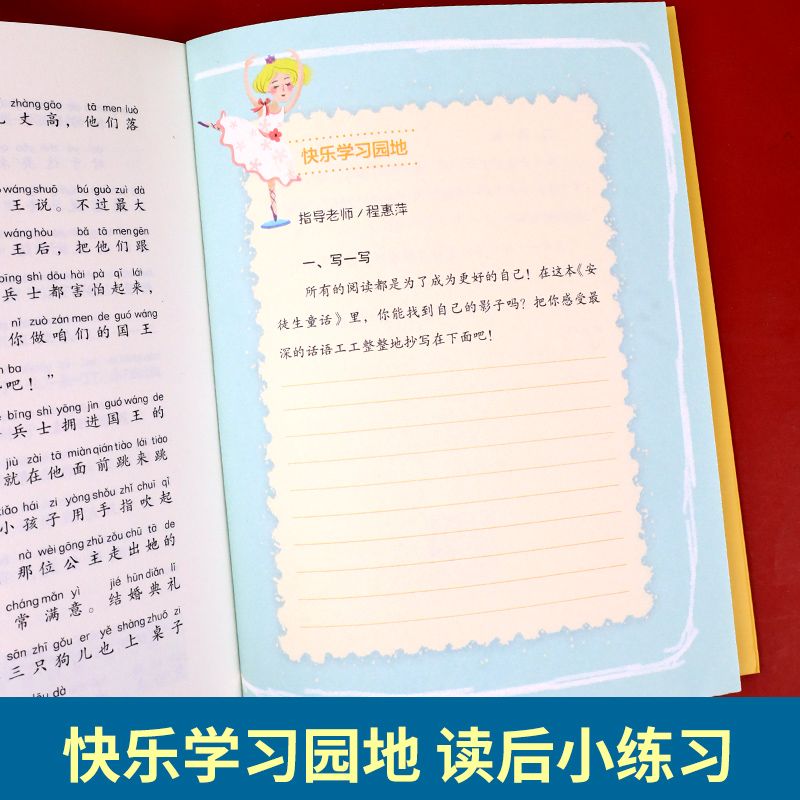 zhàng gāo tā men luò
丈高，他们落
wáng shuō bú guò zuì dà
王说。不过最大
wáng hòu bǎ tā men gēn
王后，把他们跟
bīng shì dōu hài pà qǐ lái
兵士都害怕起来，
nǐ zuò zán men de guó wáng
你做咱们的国王
ba
吧！”
bīng shì yōng jìn guó wáng de
兵士拥进国王的
jiù zài tā miàn qián tiào lái tiào
就在他面前跳来跳
xiǎo hái zi yòng shǒu zhǐ chuī qǐ
小孩子用手指吹起
nà wèi gōng zhǔ zǒu chū tā de
那位公主走出她的
cháng mǎn yì jié hūn diǎn lǐ
常满意。结婚典礼
sān zhī gǒu er yě shàng zhuō zi
三只狗儿也上桌子
dà
快乐学习园地
指导老师/程惠萍
一、写一写
所有的阅读都是为了成为更好的自己！在这本《安
徒生童话》里，你能找到自己的影子吗？把你感受最
深的话语工工整整地抄写在下面吧！
快乐学习园地 读后小练习